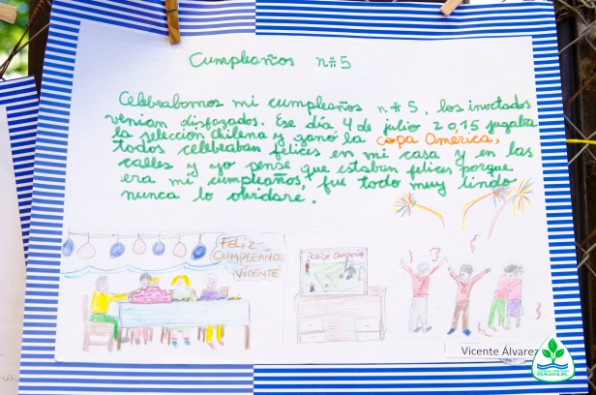 Cumpleaños nº 5
Celebrabamos mi cumpleaños nº 5, los invitados
venian disfrazados. Ese día 4 de julio 2015 jugaba
la selección chilena y ganó la copa América,
todos celebraban felices en mi casa y en las
calles y yo pense que estaban felices porque
era mi cumpleaños, fue todo muy lindo
nunca lo olvidare.
FELIZ
CUMPLEAÑOS
VICENTE
Vicente Álvarez